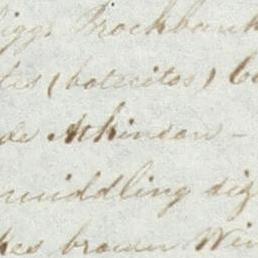 iggs Brockbank
tes (botecitos) b
de Atkinson -
middling siz
kes brown Win